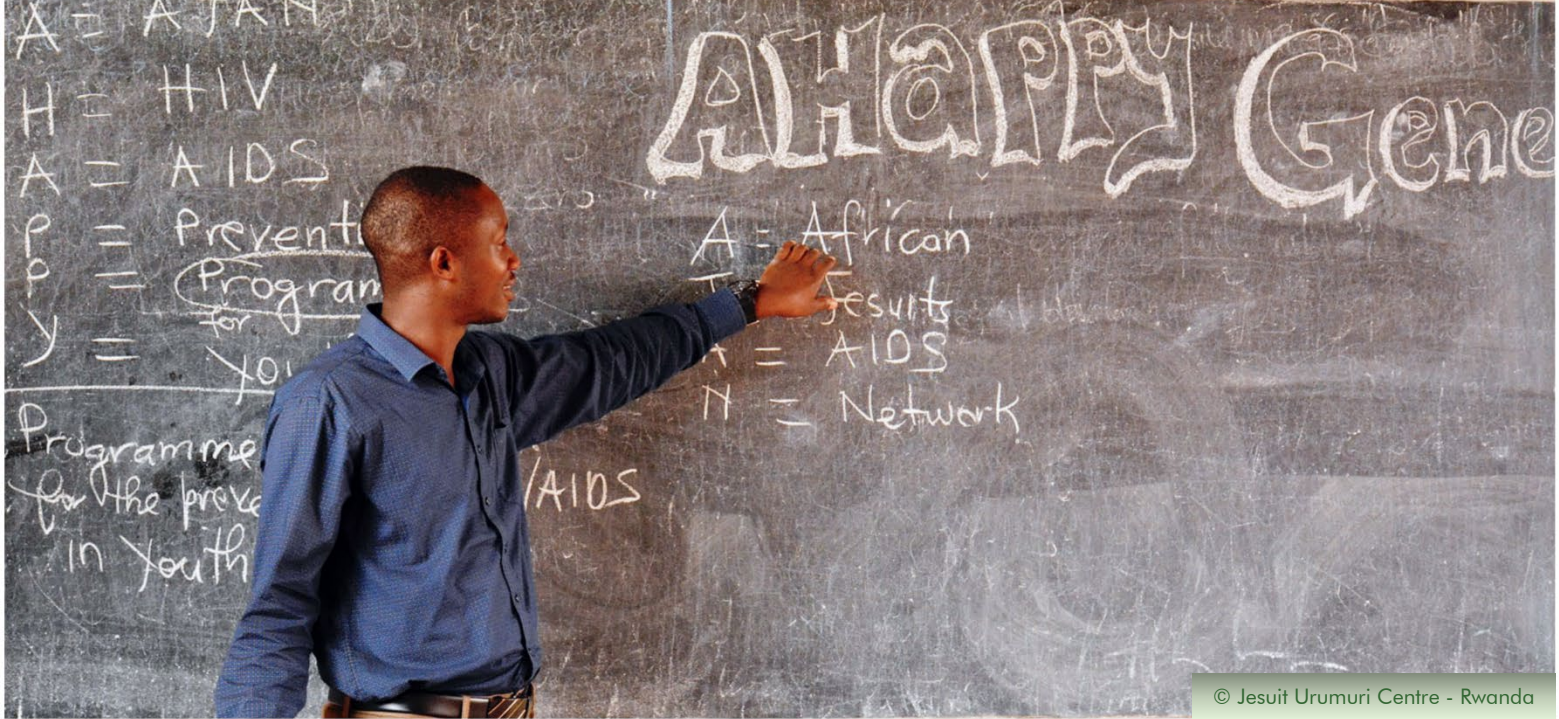 A = AJAN
H = HIV
A = AIDS
P = Preventi
P = Program
for
Y = You
Programme
for the preve /AIDS
in Youth
AHappy Gene
A = African
Jesuits
A = AIDS
N = Network
© Jesuit Urumuri Centre - Rwanda